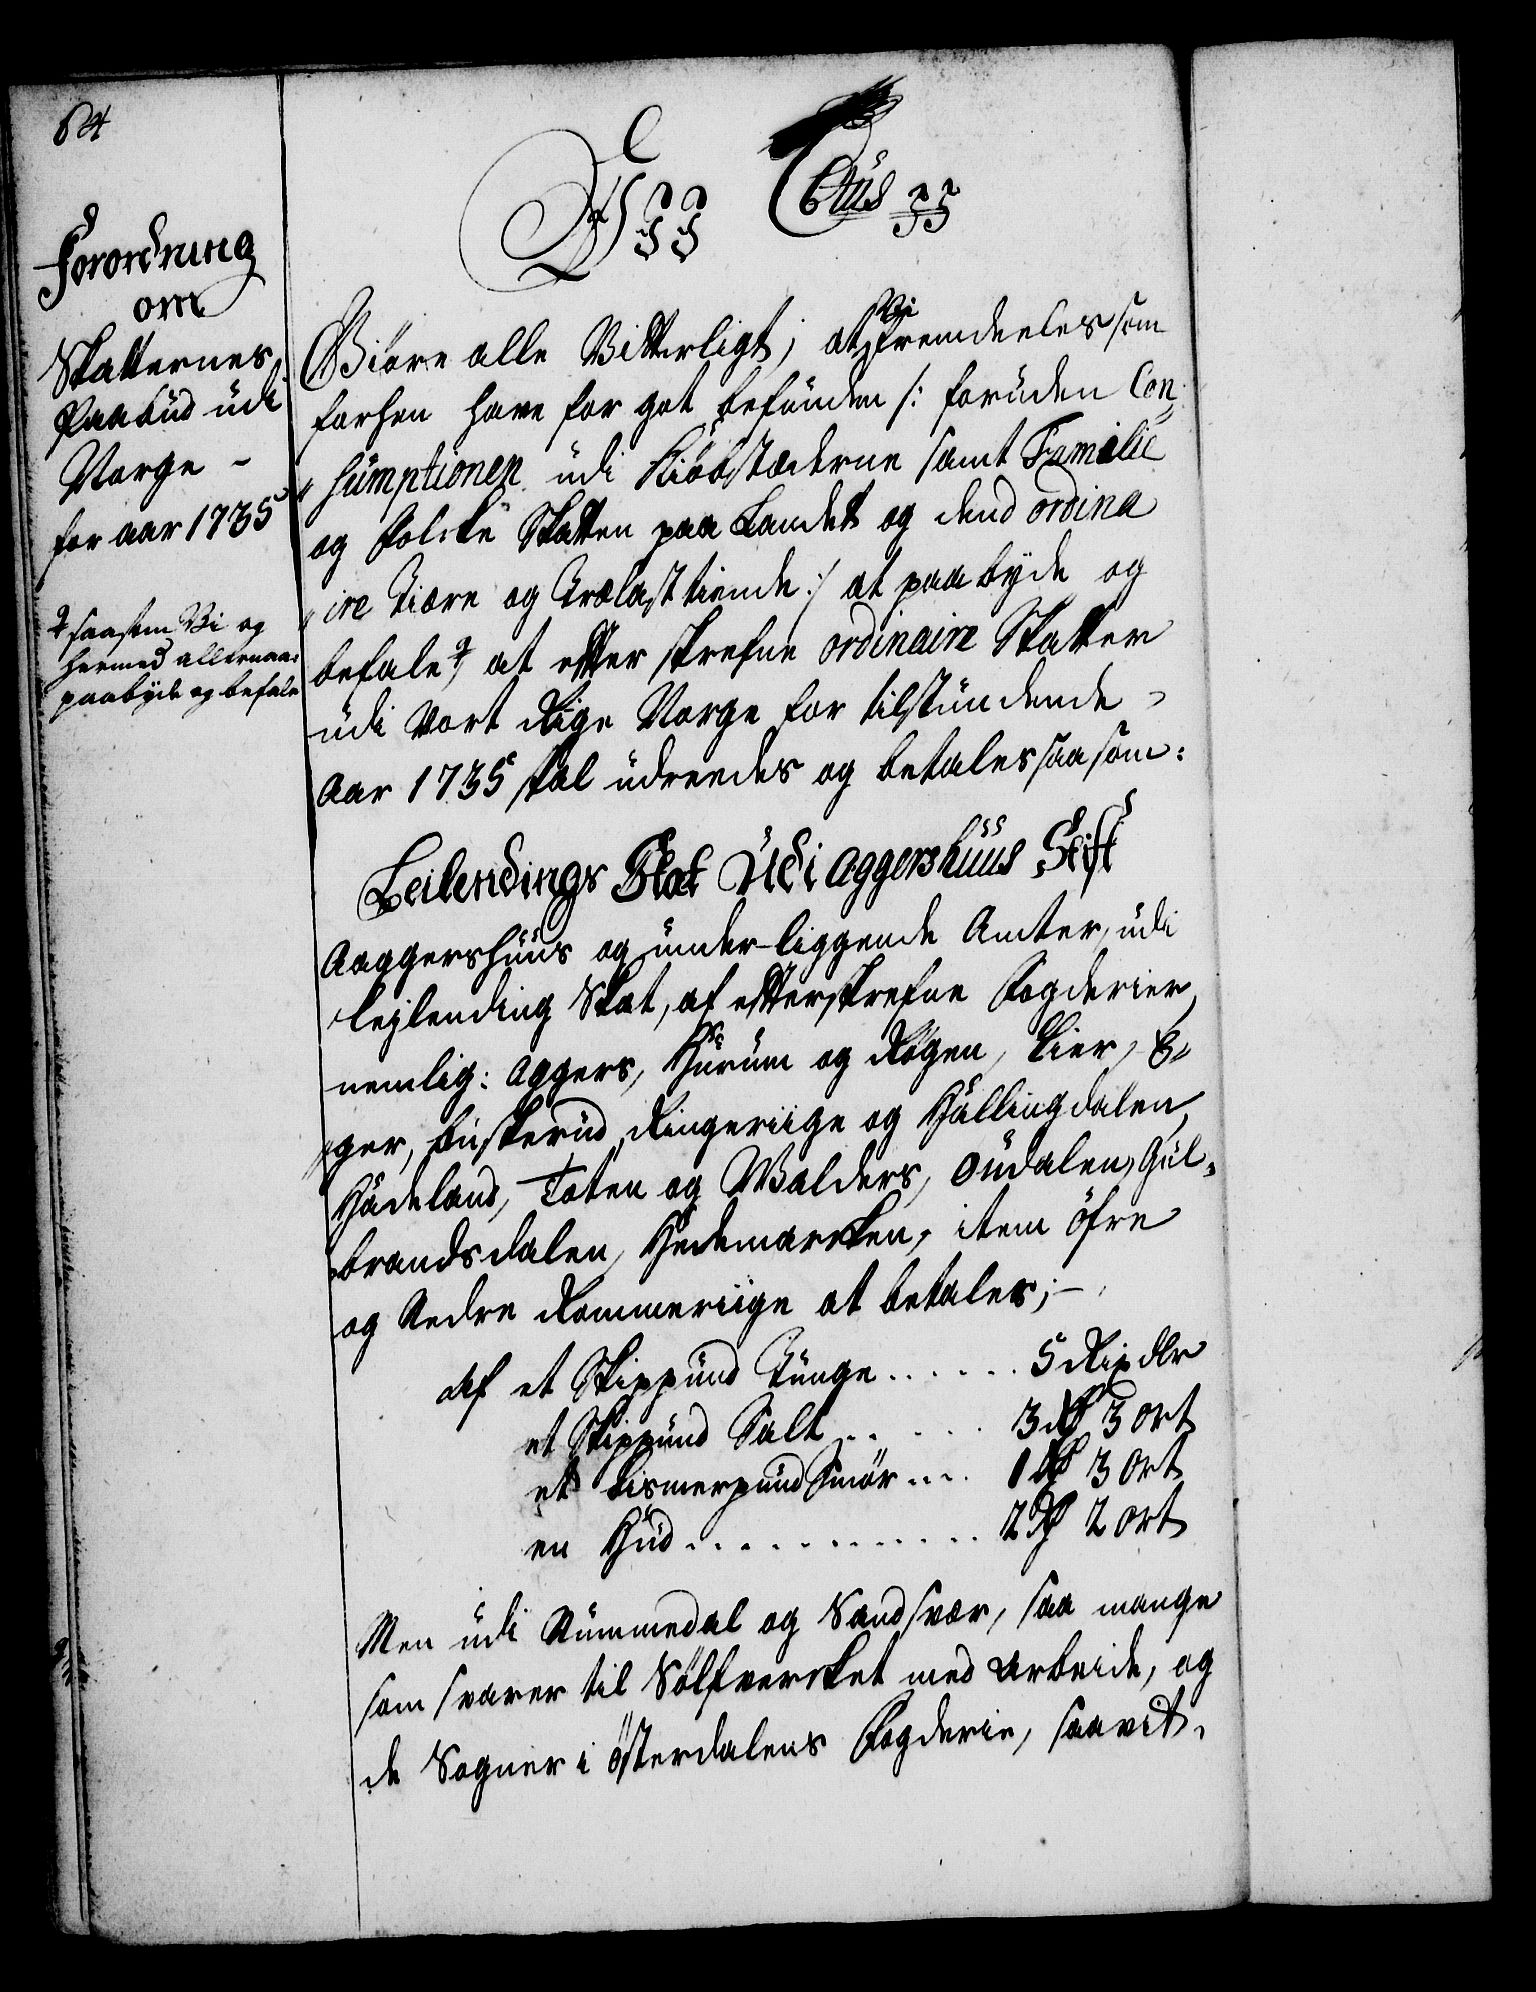 64
Forordning
om
Skatternes
Paabud udi
Norge -
for aar 1735
saasom Vi og
hermed allernaa:
paabyde og befale
Giøre alle Vitterligt; at Vi fremdeeles som
forhen have for got befunden /: foruden Con„
„sumptionen udi Kiøbstæderne samt Familie
og Folcke Skatten paa Landet og dend ordina
„ire Tiære og Trælast tiende :/ at paabyde og
befale, at efter skrefne ordinaire Skatter
udi Vort Rige Norge for tilstundende
Aar 1735 skal udreedes og betales saasom:
Leilendings Skat Udi Aggershuus Stift
Aaggershuus og under-liggende Amter, udi
leylending Skat, af efterskrefne Fogderier,
nemlig: Aggers, Hurum og Røgen, Lier, E„
„ger, Buskerud, Ringeriige og Hallingdalen,
Hadeland, Toten og Walders, Oudalen, Gul„
brandsdalen, Hedemarcken, item øfre
og Nedre Rommeriige at betales;-
Af et Skippund Tunge ...... 5 Rixdlr
et Skippund Salt ...... 3 Rd 3 ort
et Bismerpund Smør .... 1 Rd 3 Ort
en Hud ............ 2 Rd 2 ort
Men udi Nummedal og Sandsvær, saa mange
som svarer til Sølfvercket med Arbeide, og
de Sogner i Østerdalens Fogderie, saavit